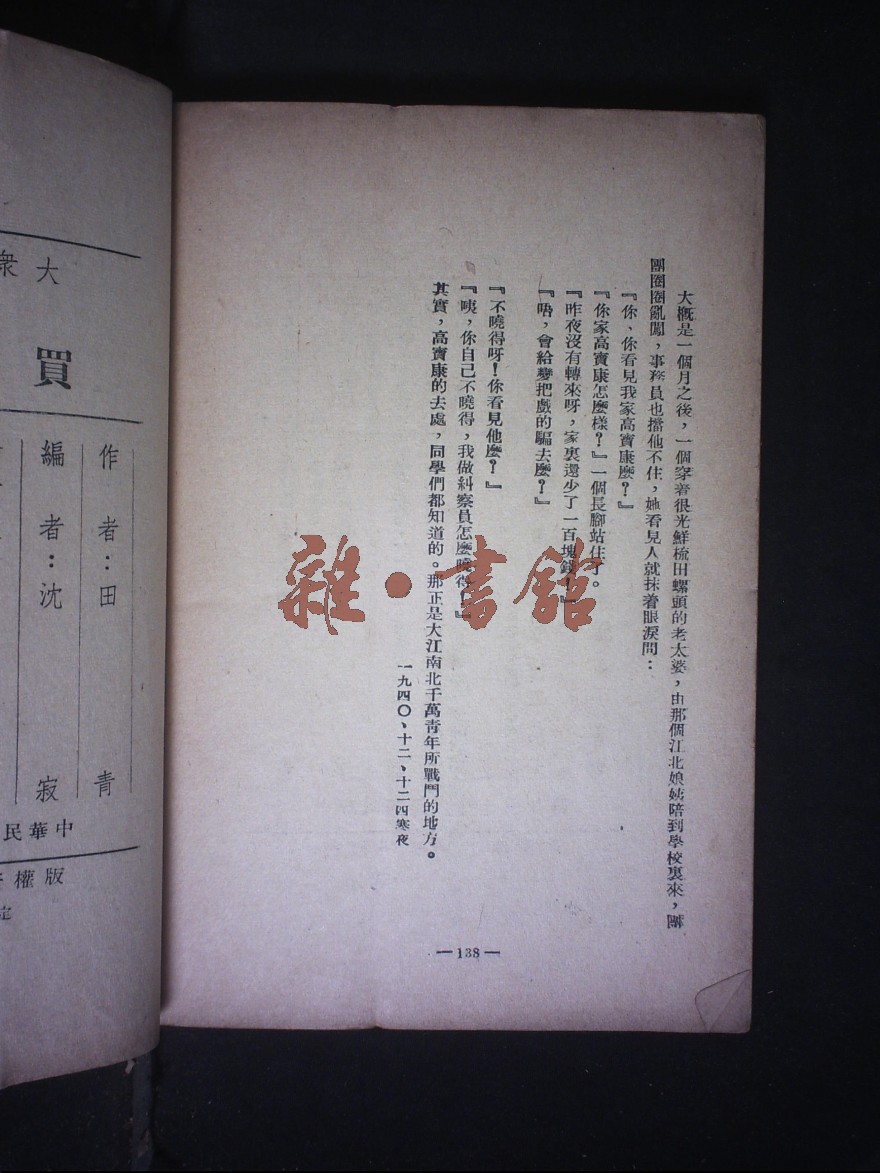 大概是一個月之後，一個穿着很光鮮梳田螺頭的老太婆，由那個江北娘姨陪到學校裏來，團
團圈圈亂闖，事務員也擋他不住，她看見人就抹着眼淚問：
『你、你看見我家高寶康麼？』
『你家高寶康怎麼樣？』一個長腳站住了。
『昨夜沒有轉來呀，家裏還少了一百塊錢！』
『唔，會給變把戲的騙去麼？』
『不曉得呀！你看見他麼？』
『咦，你自己不曉得，我做糾察員怎麼曉得！』
其實，高寶康的去處，同學們都知道的。那正是大江南北千萬青年所戰鬥的地方。
一九四〇、十二、十二四寒夜
— 138 —
雜·書館
大衆
買
作者：田青
編者：沈寂
中華民
版權
定